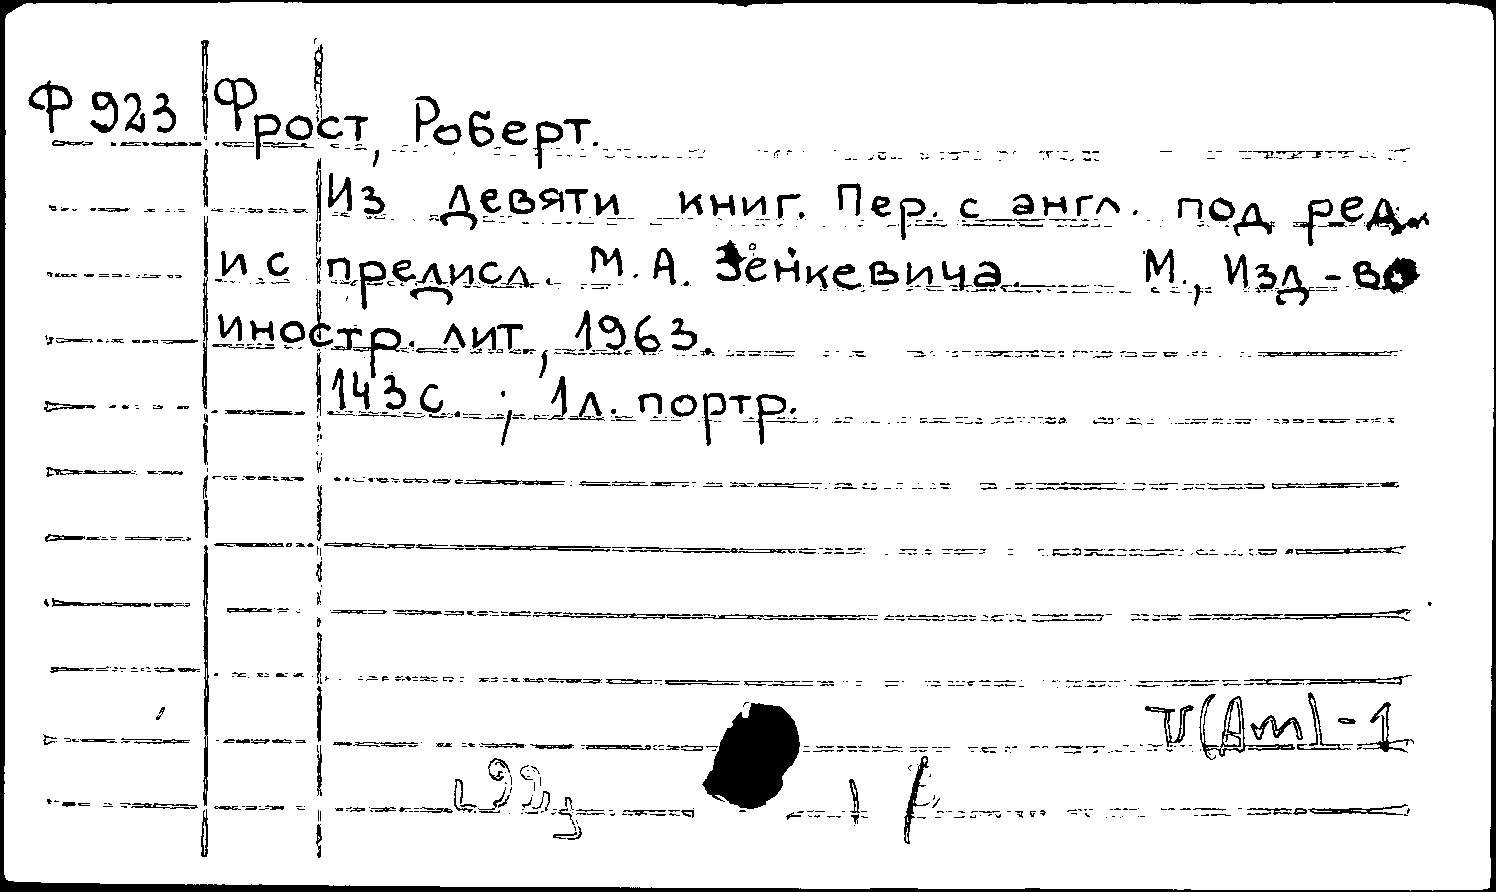 Ф 923 Фрост, Роберт.
Из девяти книг. Пер. с англ. под ред.
и с предисл. М. А. Зенкевича. М., Изд-во
иностр. лит, 1963.
143 с. ; 1 л. портр.
(Ам) - 1